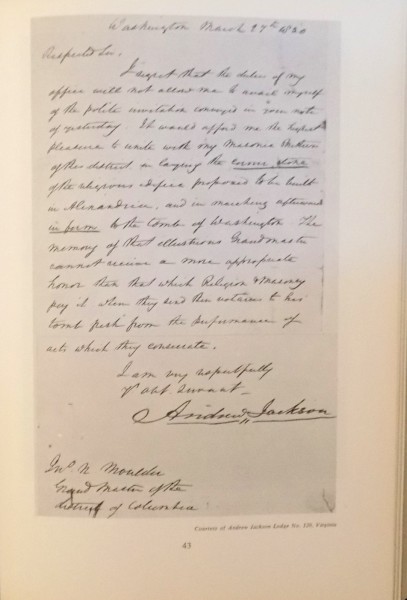 Washington March 27th 1830
Respected Sir,
I regret that the duties of my
office will not allow me to avail myself
of the polite invitation conveyed in your note
of yesterday. It would afford me the highest
pleasure to unite with my Masonic Brethren
of this district in laying the corner stone
of the religious edifice proposed to be built
in Alexandria, and in marching afterward
in form to the tomb of Washington. The
memory of that illustrious Grandmaster
cannot receive a more appropriate
honor than that which Religion & Masonry
pay it when they send their votaries to his
tomb fresh from the performance of
acts which they consecrate.
I am very respectfully
Yr obt. servant
Andrew Jackson
Jno. N Moulder
Grand Master of the
district of Columbia
Courtesy of Andrew Jackson Lodge No. 120, Virginia
43